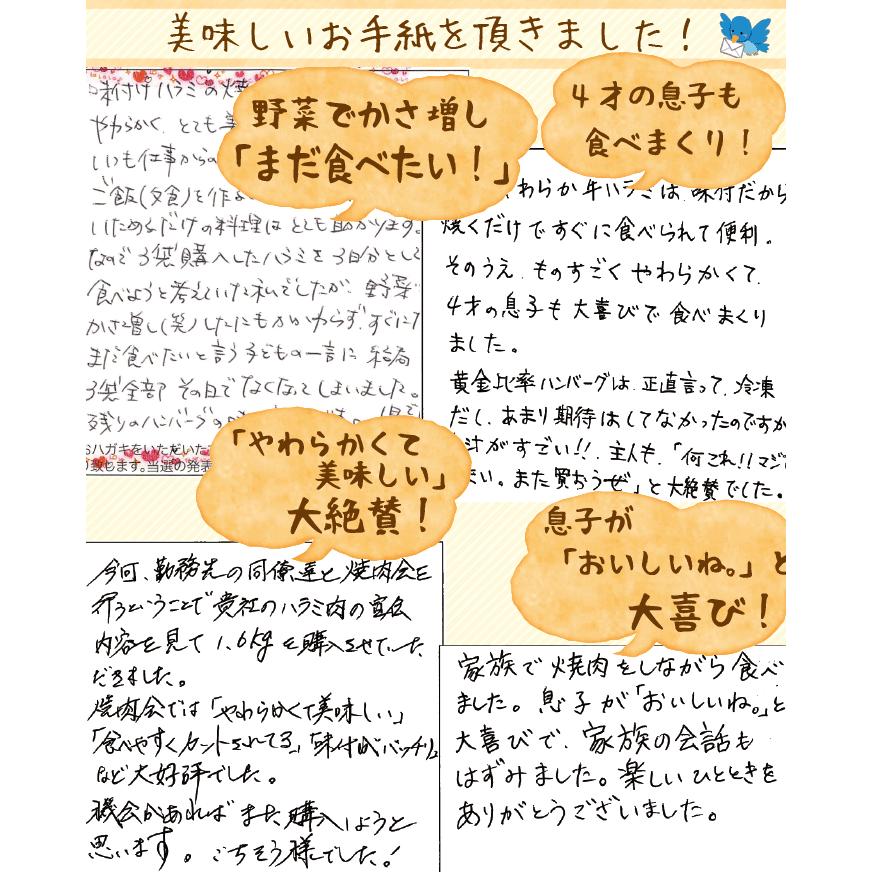 美味しいお手紙を頂きました！
野菜でかさ増し
「まだ食べたい！」
4才の息子も
食べまくり！
味付けハラミの焼
やわらかく、とても美
いつも仕事からの
ご飯(夕食)を作
いためるだけの料理はとても助かります。
なので3袋購入したハラミを3日分として
食べようと考えていた私でしたが、野菜
かさ増し(笑)したにもかかわらず、すぐに
まだ食べたいと言う子どもの一言に結局
3袋全部その日でなくなってしまいました。
残りのハンバーグ
おハガキをいただいた
致します。当選の発表
わらか牛ハラミは、味付だから
焼くだけですぐに食べられて便利。
そのうえ、ものすごくやわらかくて、
4才の息子も大喜びで食べまくり
ました。
黄金比率ハンバーグは、正直言って、冷凍
だし、あまり期待はしてなかったのですが
汁がすごい!!、主人も、「何これ!!マジ
い。また買おうぜ」と大絶賛でした。
「やわらかくて
美味しい」
大絶賛！
息子が
「おいしいね。」と
大喜び！
今回、勤務先の同僚達と焼肉会を
行うということで貴社のハラミ肉の宣伝
内容を見て1.6kgを購入させていた
だきました。
焼肉会では「やわらかくて美味しい」
「食べやすくカットされてる」「味付がバッチリ」
など大好評でした。
機会があればまた購入しようと
思います。ごちそう様でした！
家族で焼肉をしながら食べ
ました。息子が「おいしいね。」と
大喜びで、家族の会話も
はずみました。楽しいひとときを
ありがとうございました。